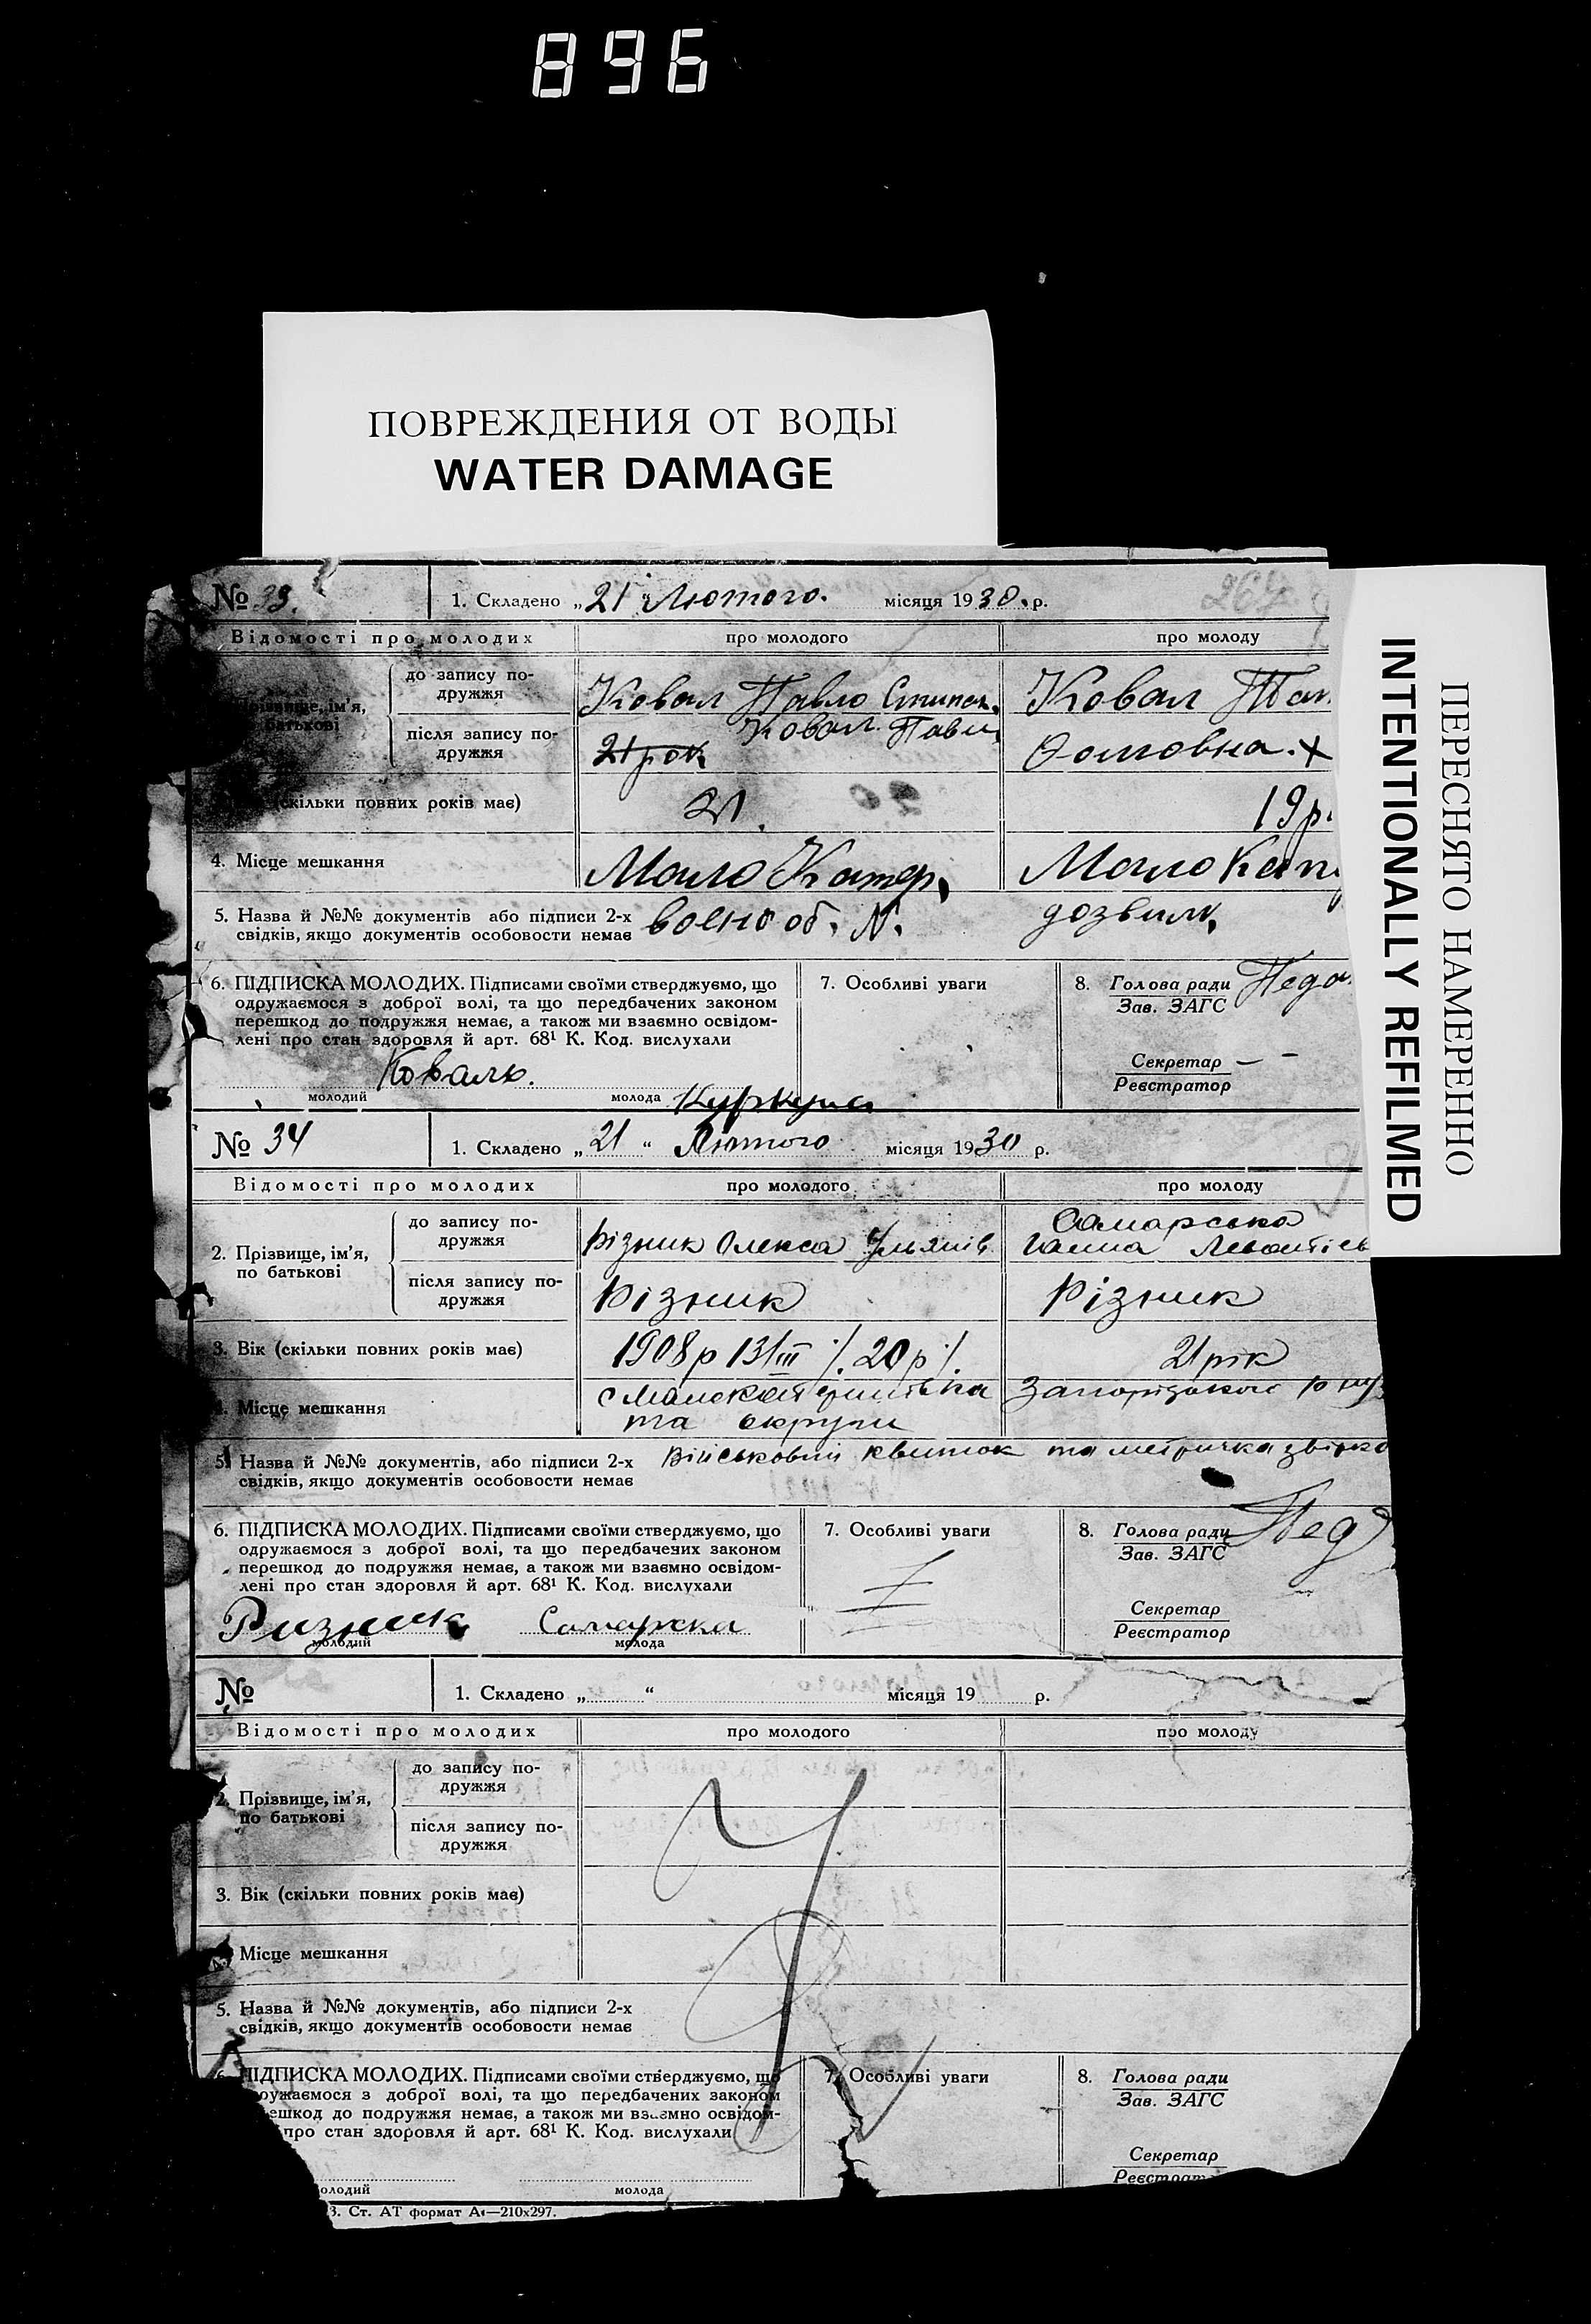 896
ПОВРЕЖДЕНИЯ ОТ ВОДЫ
WATER DAMAGE
ПЕРЕСНЯТО НАМЕРЕННО
INTENTIONALLY REFILMED
№ 33. 1. Складено „21“ Лютого. місяця 1930. р.
Відомості про молодих про молодого про молоду
до запису по-
дружжя Ковал Павло Ковал
ім’я,
батькові
після запису по-
дружжя 21 рок Ковал
(скільки повних років має) 21. 19 р.
4. Місце мешкання Мало Катер.
5. Назва й №№ документів або підписи 2-х
свідків, якщо документів особовости немає
6. ПІДПИСКА МОЛОДИХ. Підписами своїми стверджуємо, що
одружаємося з доброї волі, та що передбачених законом
перешкод до подружжя немає, а також ми взаємно освідом-
лені про стан здоровля й арт. 68¹ К. Код. вислухали
Коваль.
молодий молода
7. Особливі уваги
8. Голова ради
Зав. ЗАГС
Секретар — –
Реєстратор
№ 34 1. Складено „21“ Лютого місяця 1930 р.
Відомості про молодих про молодого про молоду
2. Прізвище, ім’я,
по батькові
до запису по-
дружжя Різник Олекса Самарська
Ганна
після запису по-
дружжя Різник Різник
3. Вік (скільки повних років має) 1908 р 13/III /. 20 р /. 21 рік
4. Місце мешкання
та округи
5. Назва й №№ документів, або підписи 2-х
свідків, якщо документів особовости немає
Військовий квиток та метрична
6. ПІДПИСКА МОЛОДИХ. Підписами своїми стверджуємо, що
одружаємося з доброї волі, та що передбачених законом
перешкод до подружжя немає, а також ми взаємно освідом-
лені про стан здоровля й арт. 68¹ К. Код. вислухали
Ризник Самарска
молодий молода
7. Особливі уваги
8. Голова ради
Зав. ЗАГС
Секретар
Реєстратор
№ 1. Складено „ “ місяця 19 р.
Відомості про молодих про молодого про молоду
2. Прізвище, ім’я,
по батькові
до запису по-
дружжя
після запису по-
дружжя
3. Вік (скільки повних років має)
Місце мешкання
5. Назва й №№ документів, або підписи 2-х
свідків, якщо документів особовости немає
ПІДПИСКА МОЛОДИХ. Підписами своїми стверджуємо, що
ружаємося з доброї волі, та що передбачених законом
ешкод до подружжя немає, а також ми взаємно освідом-
про стан здоровля й арт. 68¹ К. Код. вислухали
олодий молода
7. Особливі уваги
8. Голова ради
Зав. ЗАГС
Секретар
Реєстрат
З. Ст. АТ формат А4—210х297.